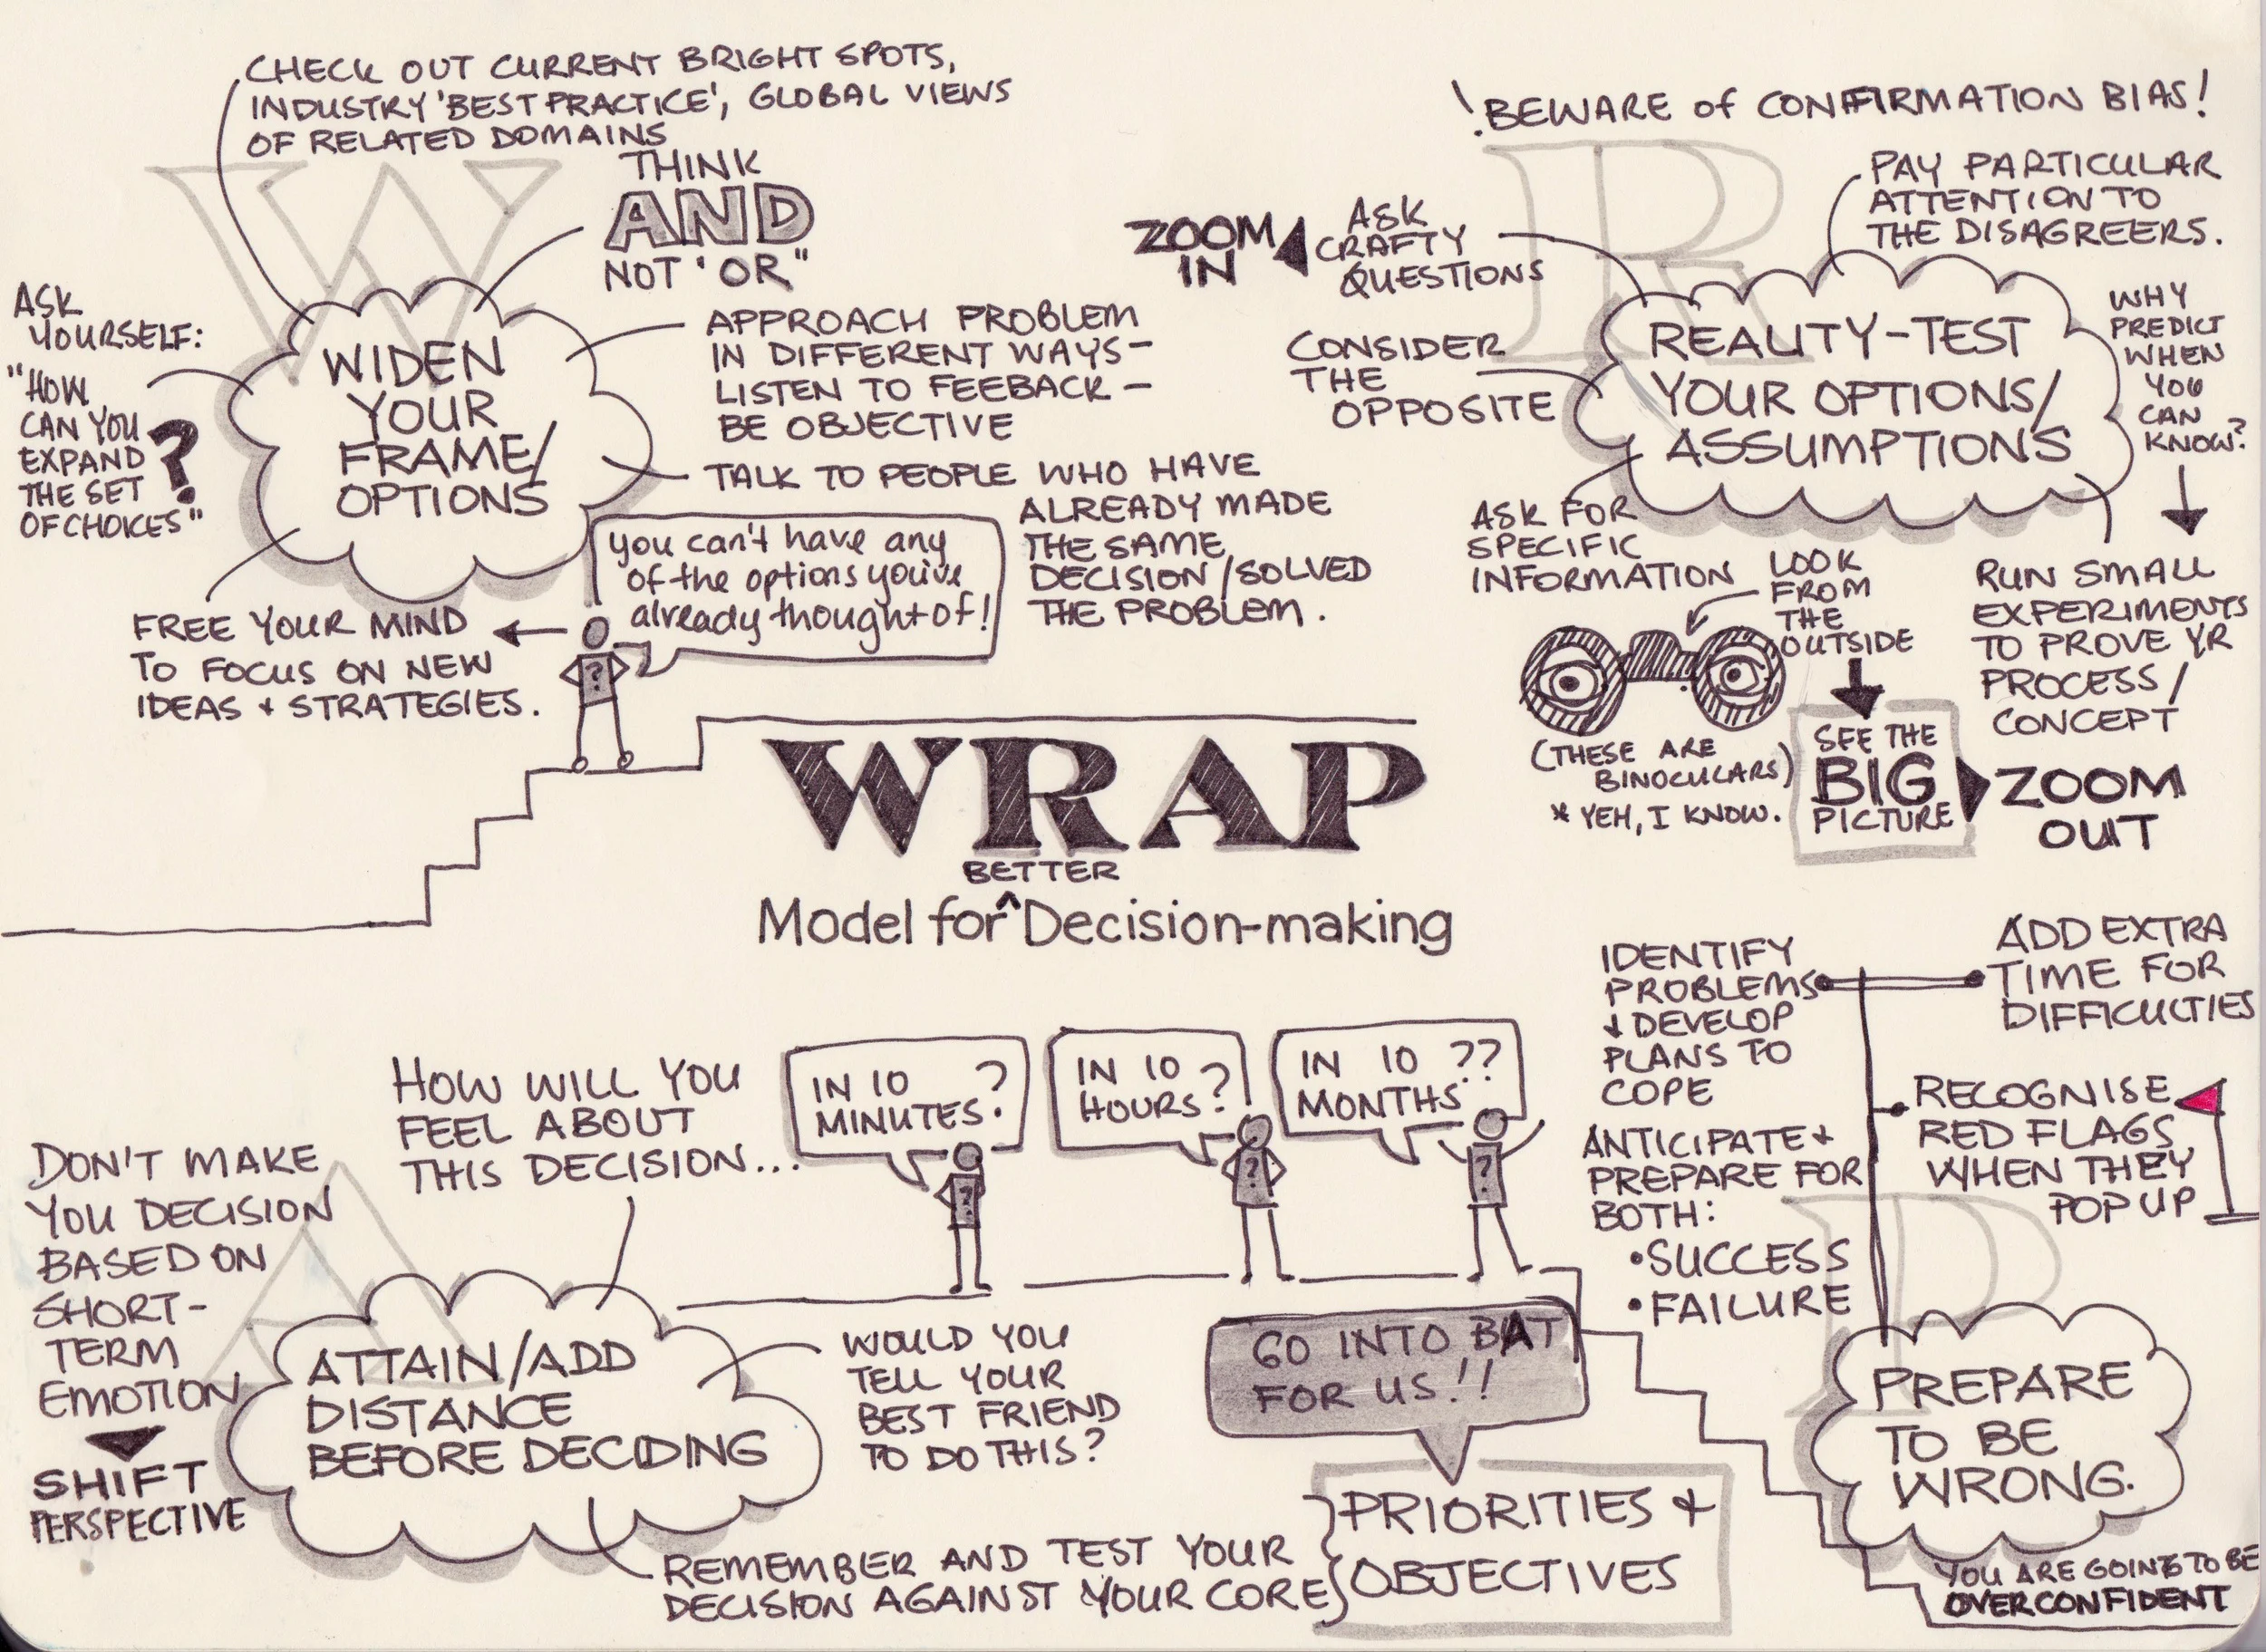 CHECK OUT CURRENT BRIGHT SPOTS,
INDUSTRY 'BEST PRACTICE', GLOBAL VIEWS
OF RELATED DOMAINS
THINK
AND
NOT 'OR"
ASK
YOURSELF:
"HOW
CAN YOU
EXPAND
THE SET
OF CHOICES"
?
WIDEN
YOUR
FRAME/
OPTIONS
APPROACH PROBLEM
IN DIFFERENT WAYS-
LISTEN TO FEEBACK-
BE OBJECTIVE
TALK TO PEOPLE WHO HAVE
ALREADY MADE
THE SAME
DECISION/SOLVED
THE PROBLEM.
you can't have any
of the options you've
already thought of!
FREE YOUR MIND
TO FOCUS ON NEW
IDEAS + STRATEGIES.
?
W
! BEWARE of CONFIRMATION BIAS!
PAY PARTICULAR
ATTENTION TO
THE DISAGREERS.
ZOOM
IN
ASK
CRAFTY
QUESTIONS
CONSIDER
THE
OPPOSITE
R
REALITY-TEST
YOUR OPTIONS/
ASSUMPTIONS
WHY
PREDICT
WHEN
YOU
CAN
KNOW?
ASK FOR
SPECIFIC
INFORMATION
LOOK
FROM
THE
OUTSIDE
RUN SMALL
EXPERIMENTS
TO PROVE YR
PROCESS/
CONCEPT
(THESE ARE
BINOCULARS)
* YEH, I KNOW.
SEE THE
BIG
PICTURE
ZOOM
OUT
WRAP
BETTER
Model for ^ Decision-making
HOW WILL YOU
FEEL ABOUT
THIS DECISION...
IN 10
MINUTES?
IN 10
HOURS?
IN 10 ??
MONTHS
?
?
?
DON'T MAKE
YOU DECISION
BASED ON
SHORT-
TERM
EMOTION
SHIFT
PERSPECTIVE
A
ATTAIN/ADD
DISTANCE
BEFORE DECIDING
WOULD YOU
TELL YOUR
BEST FRIEND
TO DO THIS?
REMEMBER AND TEST YOUR
DECISION AGAINST YOUR CORE
GO INTO BAT
FOR US!!
PRIORITIES +
OBJECTIVES
IDENTIFY
PROBLEMS
+ DEVELOP
PLANS TO
COPE
ADD EXTRA
TIME FOR
DIFFICULTIES
RECOGNISE
RED FLAGS
WHEN THEY
POP UP
ANTICIPATE +
PREPARE FOR
BOTH:
• SUCCESS
• FAILURE
P
PREPARE
TO BE
WRONG.
YOU ARE GOING TO BE
OVERCONFIDENT